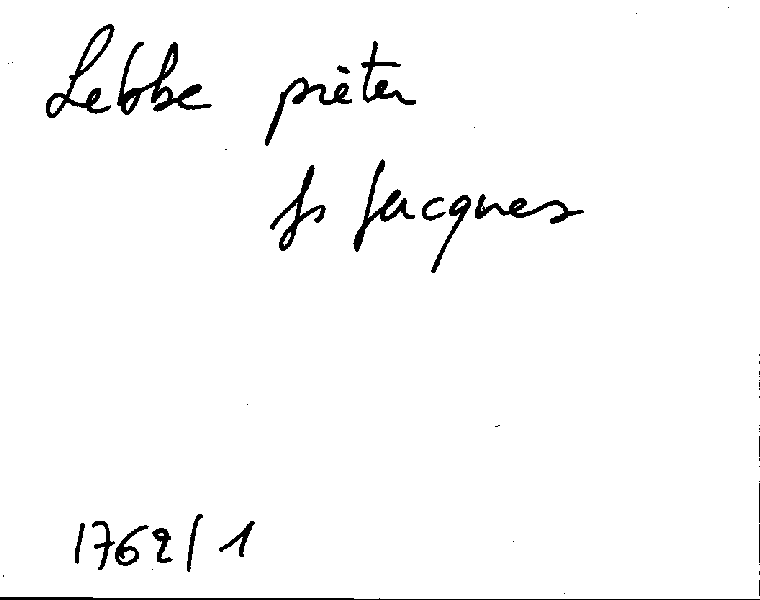 Lebbe pieter
fs Jacques
1762/1